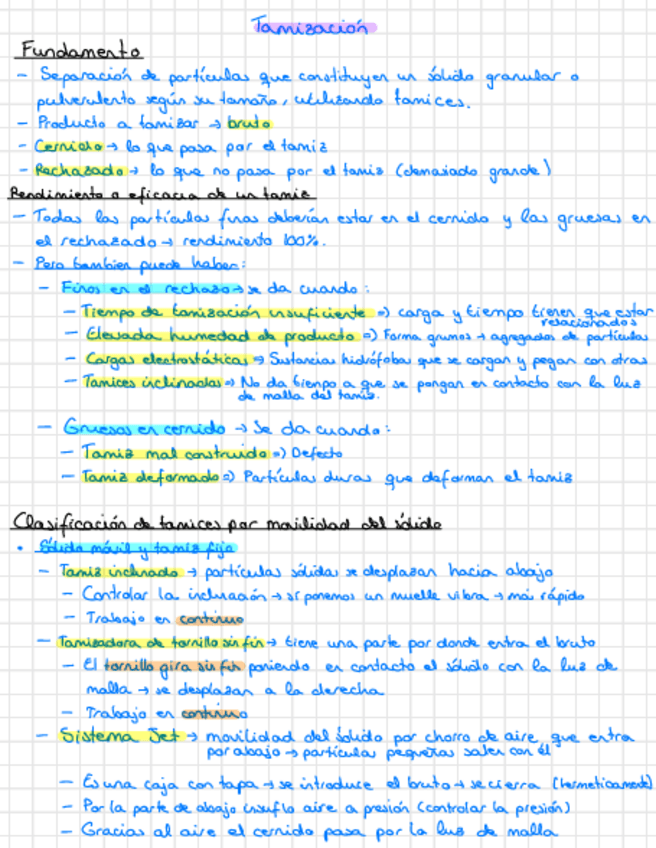 Tamización
Fundamento
- Separación de partículas que constituyen un sólido granular o
pulverulento según su tamaño, utilizando tamices.
- Producto a tamizar → bruto
- Cernido → lo que pasa por el tamiz
- Rechazado → lo que no pasa por el tamiz (demasiado grande)
Rendimiento o eficacia de un tamiz
- Todas las partículas finas deberían estar en el cernido y las gruesas en
el rechazado → rendimiento 100%.
- Pero tambien puede haber:
- Finos en el rechazo → se da cuando:
- Tiempo de tamización insuficiente => carga y tiempo tienen que estar
relacionados
- Elevada humedad de producto => Forma grumos → agregados de partículas
- Cargas electrostáticas => Sustancias hidrófobas que se cargan y pegan con otras
- Tamices inclinados => No da tiempo a que se pongan en contacto con la luz
de malla del tamiz.
- Gruesos en cernido → Se da cuando:
- Tamiz mal construido => Defecto
- Tamiz deformado => Partículas duras que deforman el tamiz
Clasificación de tamices por movilidad del sólido
• Sólido móvil y tamiz fijo
- Tamiz inclinado → partículas sólidas se desplazan hacia abajo
- Controlar la inclinación → si ponemos un muelle vibra → más rápido
- Trabajo en continuo
- Tamizadora de tornillo sin fin → tiene una parte por donde entra el bruto
- El tornillo gira sin fin poniendo en contacto el sólido con la luz de
malla → se desplazan a la derecha
- Trabajo en continuo
- Sistema Jet → movilidad del sólido por chorro de aire, que entra
por abajo → partículas pequeñas salen con él
- Es una caja con tapa → se introduce el bruto → se cierra (hermeticamente)
- Por la parte de abajo insuflo aire a presión (controlar la presión)
- Gracias al aire el cernido pasa por la luz de malla